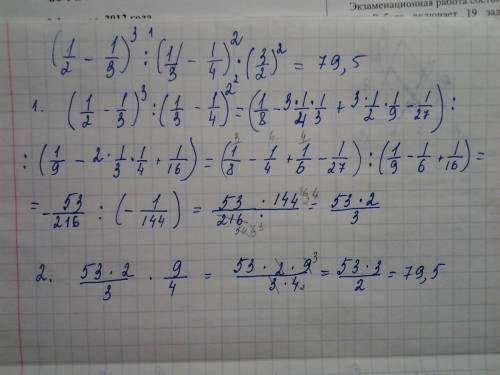 Экзаменационная работа состои
2012 года
19 зад
(1/2 - 1/3)^3 : (1/3 - 1/4)^2 · (3/2)^2 = 79,5
1. (1/2 - 1/3)^3 : (1/3 - 1/4)^2 = (1/8 - 3·1/4·1/3 + 3·1/2·1/9 - 1/27) :
: (1/9 - 2·1/3·1/4 + 1/16) = (1/8 - 1/4 + 1/6 - 1/27) : (1/9 - 1/6 + 1/16) =
= - 53/216 : (- 1/144) = 53 · 144/216 = 53·2/3
2. 53·2/3 · 9/4 = 53·2·9/3·4 = 53·3/2 = 79,5